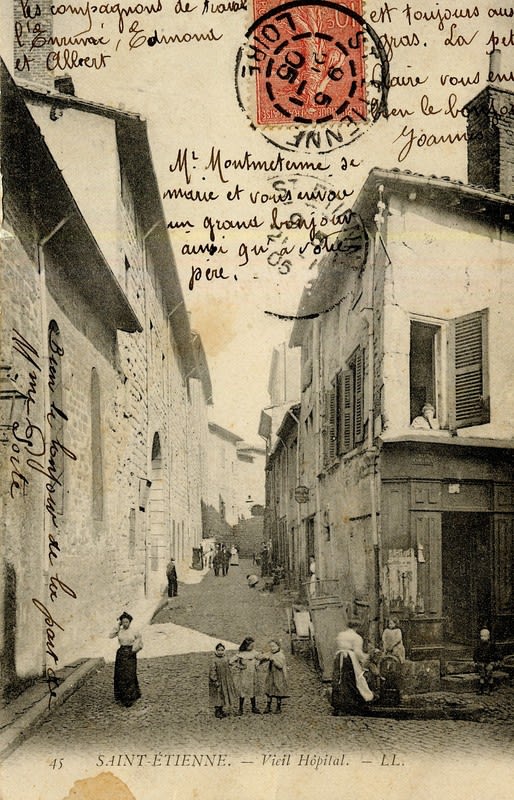 les compagnons de travail
l'Enruvré, Edmond
et Albert
est toujours aus
gras. La pet
Claire vous en
bien le bonjo
Joannès
10c
ÇAISE
ST ETIENNE
LOIRE
05
Mr Montmeterme se
marie et vous envoie
un grand bonjour
ainsi qu'à votre
père.
05
Bien le bonjour de la part de
Mme
Porte
45 SAINT-ÉTIENNE. — Vieil Hôpital. — LL.